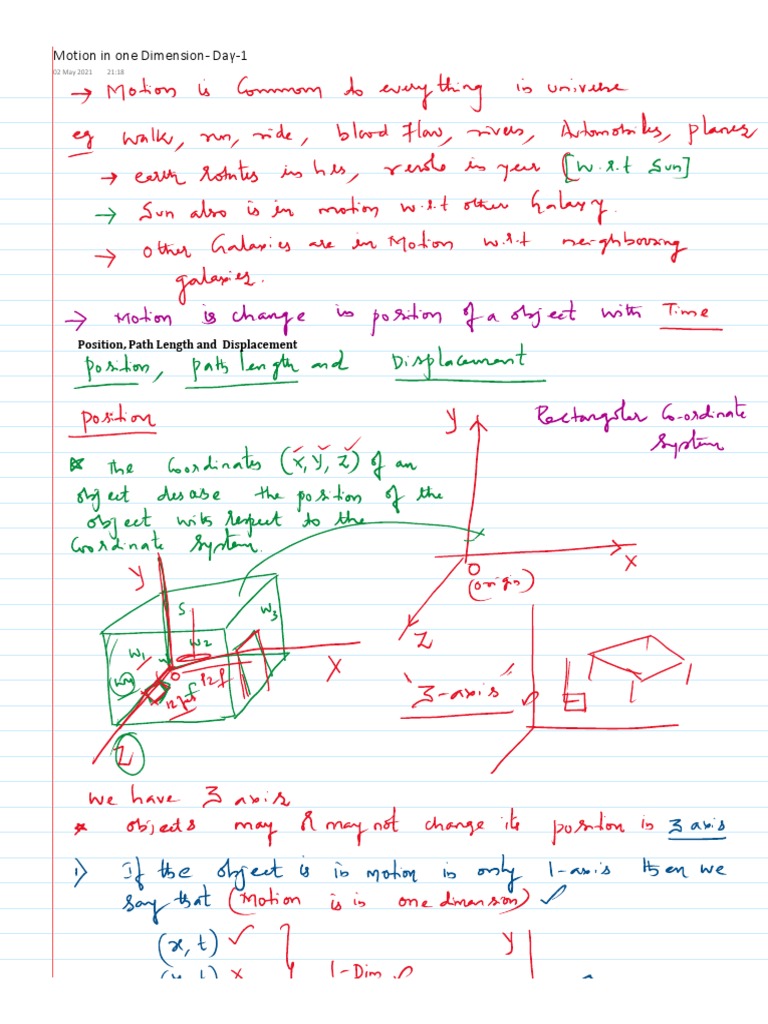 Motion in one Dimension- Day-1
02 May 2021 21:18
→ Motion is Common to everything in universe
eg walk, run, ride, blood flow, rivers, Automobiles, planes
→ earth rotates in hrs, revole in year [w.r.t Sun]
→ Sun also is in motion w.r.t other Galaxy.
→ other Galaxies are in Motion w.r.t neighbouring
galaxies.
→ Motion is change in position of a object with Time
Position, Path Length and Displacement
position, path length and Displacement
position
Y
Rectangular Co-ordinate
System
* the Coordinates (x, y, z) of an
object desase the position of the
object with respect to the
Coordinate system.
X
O
(origin)
Z
"3-axis"
Y
S
W3
W2
W1
W4
O
12f
12f
X
Z
we have 3 axis
* objects may or may not change its position in 3 axis
1) If the object is in motion in only 1-axis then we
say that (Motion is in one dimansion) ✓
(x, t) ✓
Y
(y, t) x
1-Dim ✓